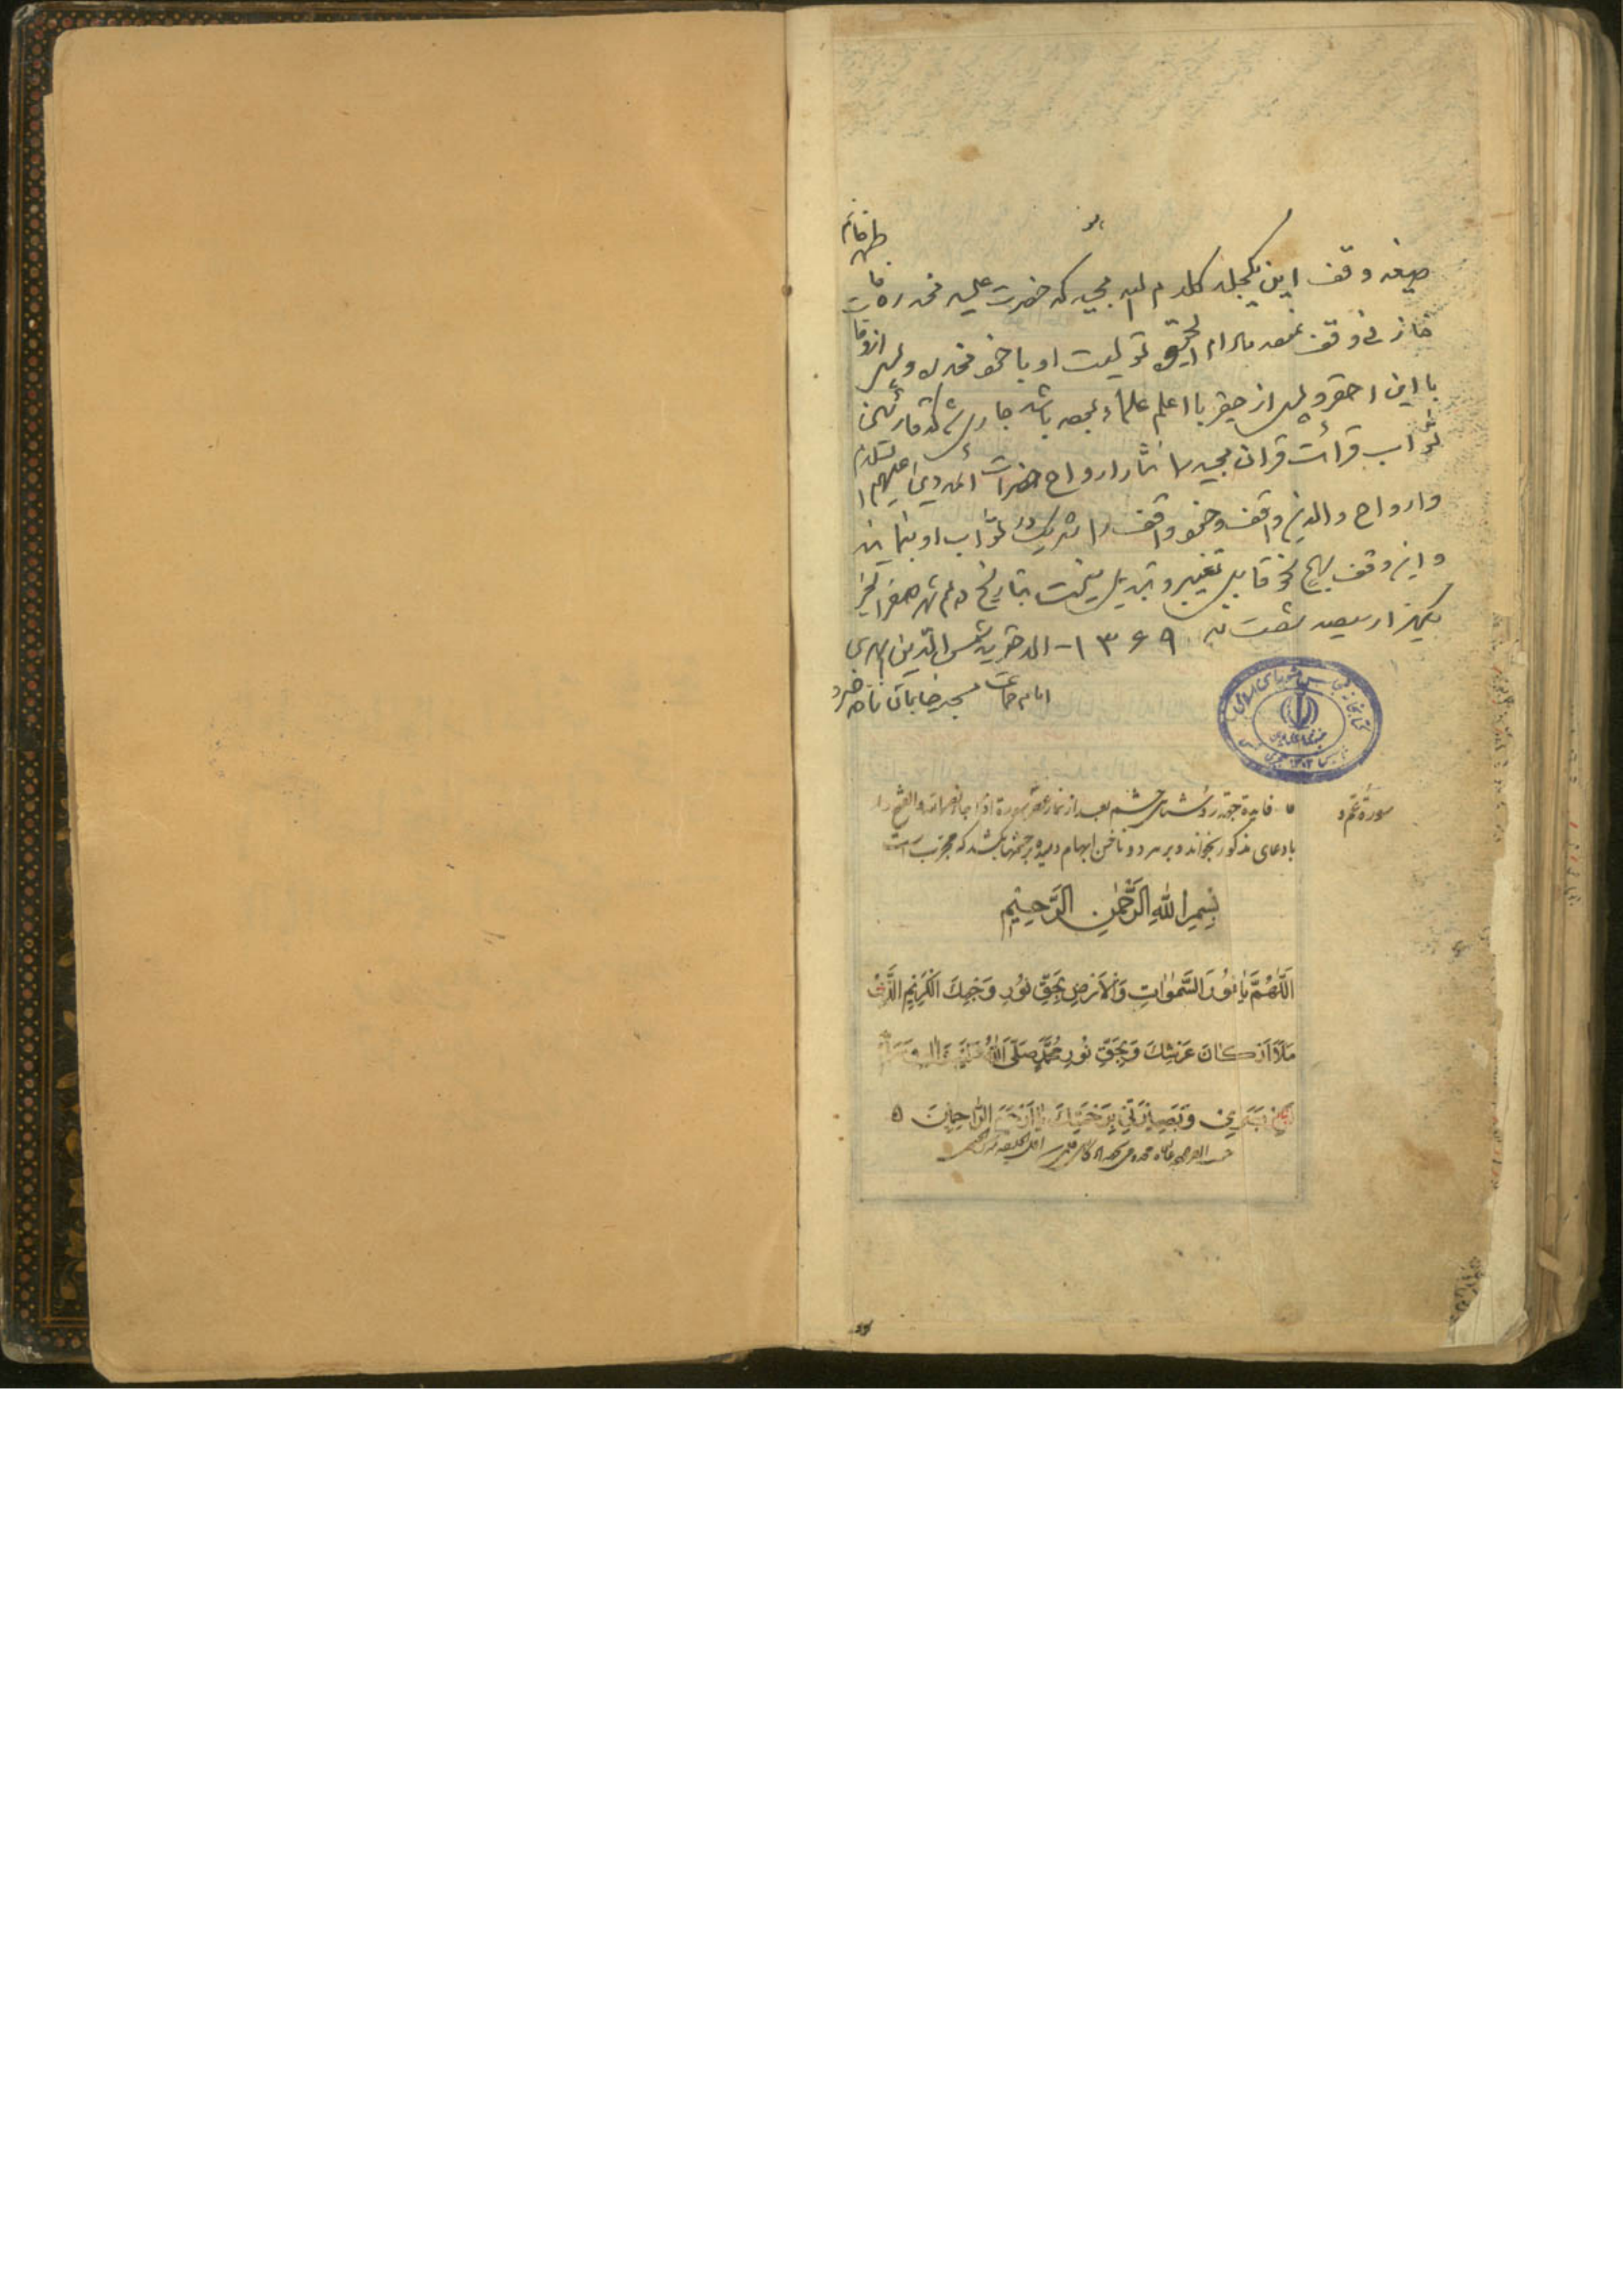 صیغه وقف این یکجلد کلام الله مجید که حضرت علیه مخدره
خازنی وقف نموده مادام الحیوة تولیت او با خود مخدره و پس از وفات
با این احقر و پس از حقیر با اعلم علماء باشد جاری شد که قارئین
ثواب قرائت قران مجید را نثار ارواح حضرات ائمه دین علیهم السلام
وارواح والدین واقف و خود واقف را شریک در ثواب او بنمایند
واین وقف بهیچ نحو قابل تغییر و تبدیل نیست بتاریخ دهم شهر صفر الخیر
یکهزار سیصد شصت نه ۱۳۶۹ - الاحقر شمس الدین ابهری
امام جماعت مسجد خیابان ناصر خسرو
کتابخانه مجلس شورای اسلامی
سورة
فایده جهة روشنائی چشم بعد از نماز سورة اذا جاء نصر الله والفتح را
با دعای مذکور بخواند و بر هر دو ناخن ابهام دمیده بر چشمها بکشد که مجرب است
بِسْمِ اللهِ الرَّحْمٰنِ الرَّحِيْمِ
اَللّٰهُمَّ يَا نُوْرَ السَّمٰوَاتِ وَالْاَرْضِ بِحَقِّ نُوْرِ وَجْهِكَ الْكَرِيْمِ الَّذِیْ
مَلَأَ اَرْكَانَ عَرْشِكَ وَبِحَقِّ نُوْرِ مُحَمَّدٍ صَلَّى اللهُ عَلَيْهِ وَاٰلِهٖ
بَصَرِيْ وَبَصِيْرَتِيْ بِرَحْمَتِكَ يَا اَرْحَمَ الرَّاحِمِيْنَ